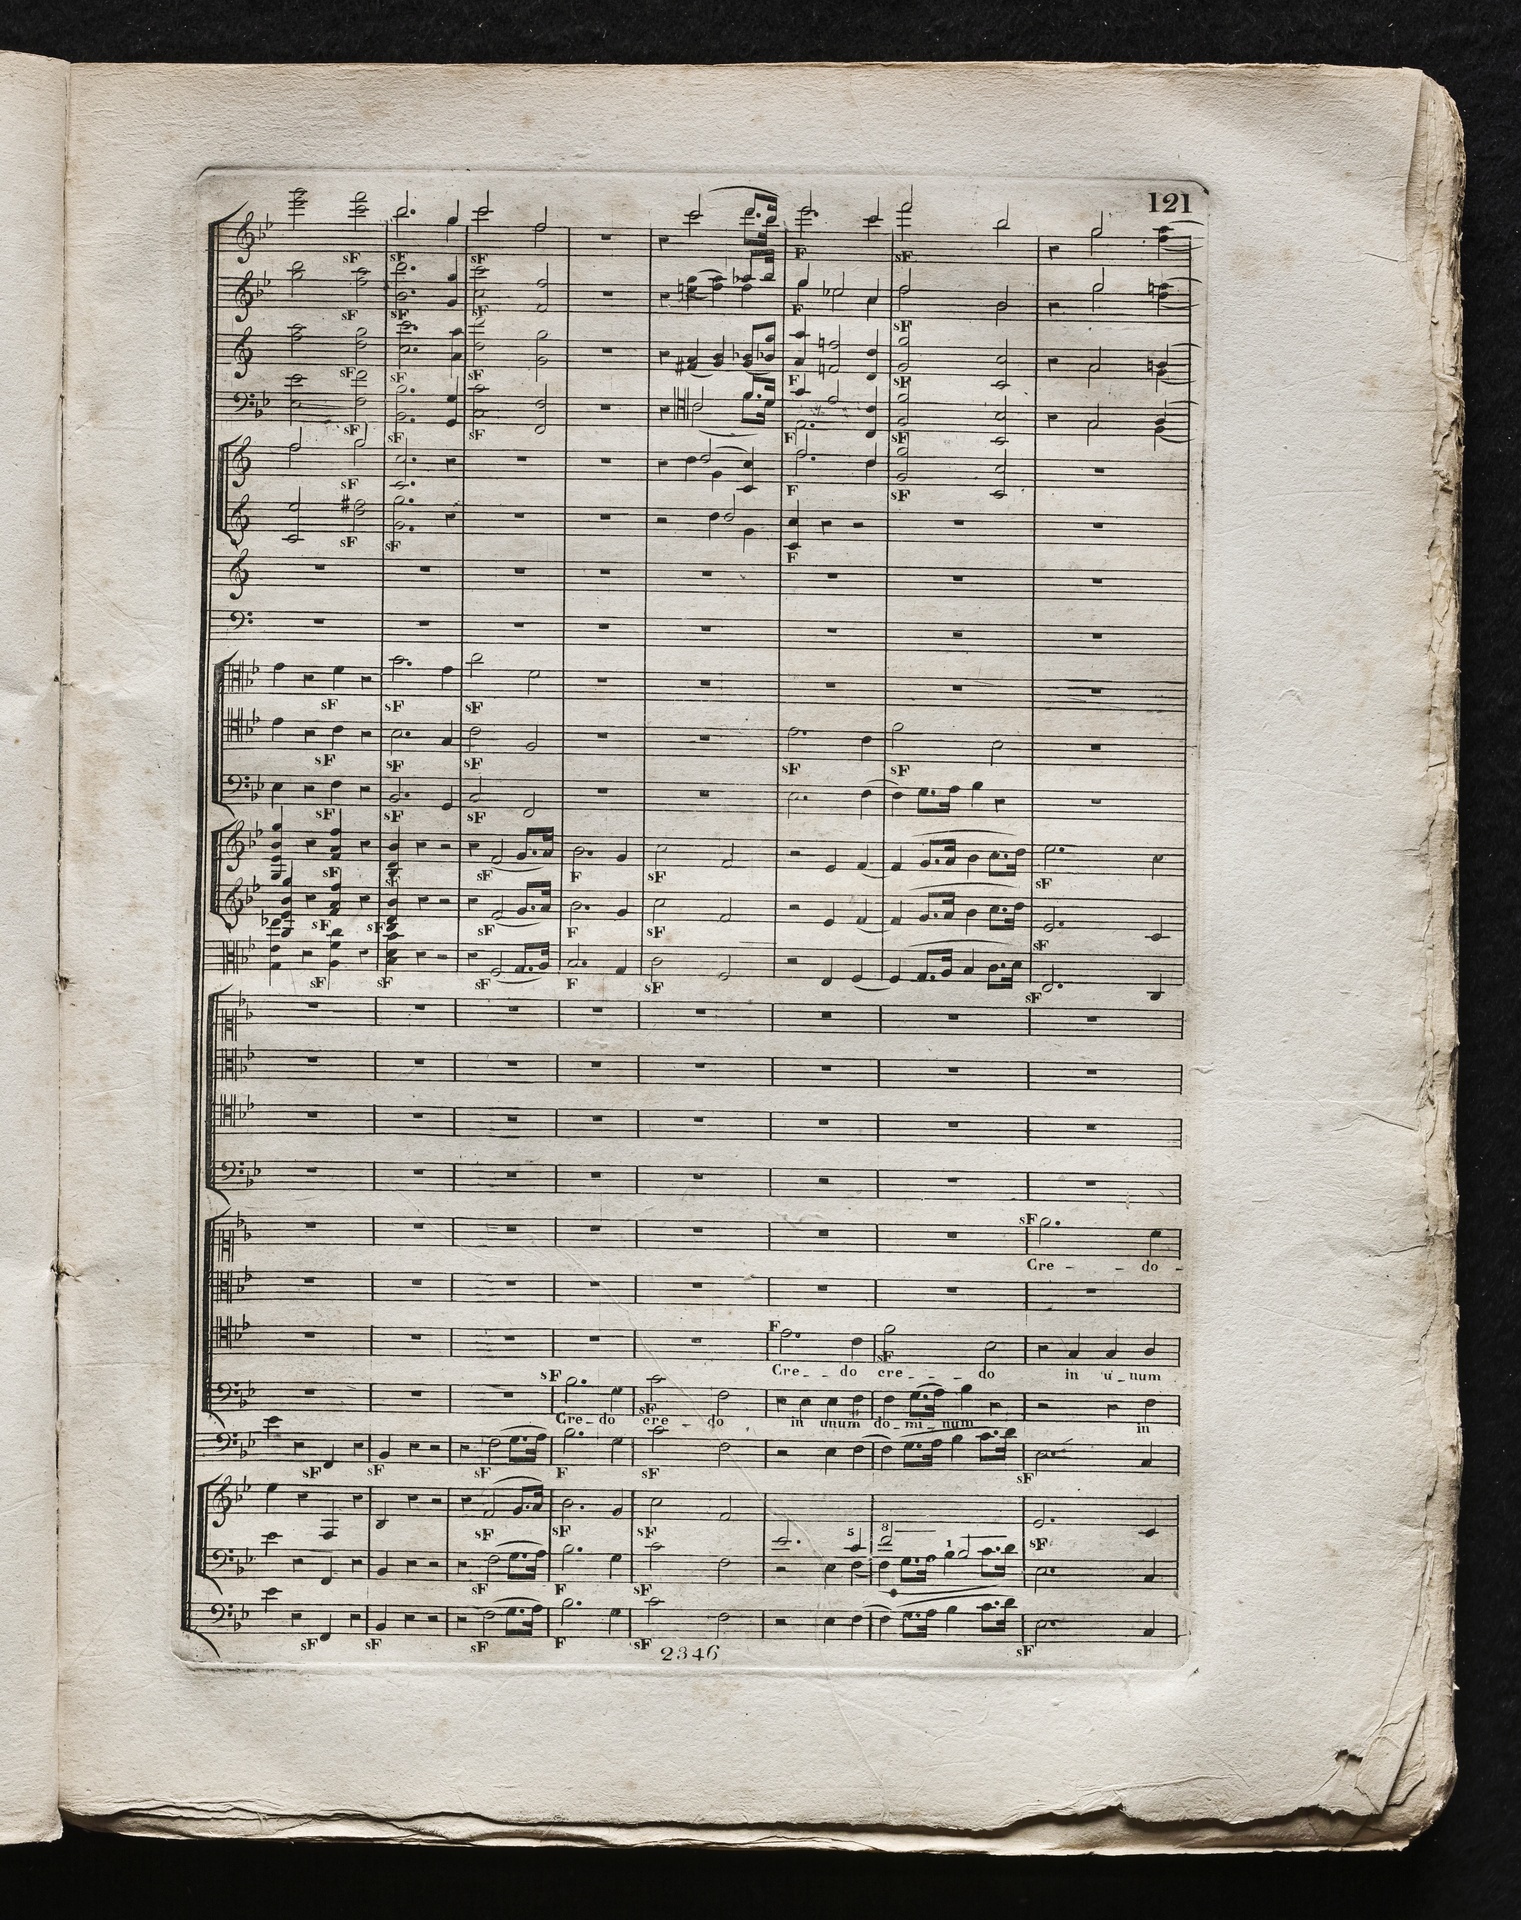 121
sF sF F sF
sF sF sF F sF
sF sF sF F sF
sF sF sF F sF
sF F sF
sF sF F
sF sF sF
sF sF sF sF sF
sF sF sF
sF sF sF F sF sF
sF sF sF F sF sF
sF sF sF F sF sF
sF
Cre - - do -
F sF
Cre - - do cre - - - do in u - num
sF sF
Cre - do cre - do in unum do - mi - num in
sF sF sF F sF sF
5 8 1
sF sF sF sF
sF F sF
sF sF sF F sF sF
2346